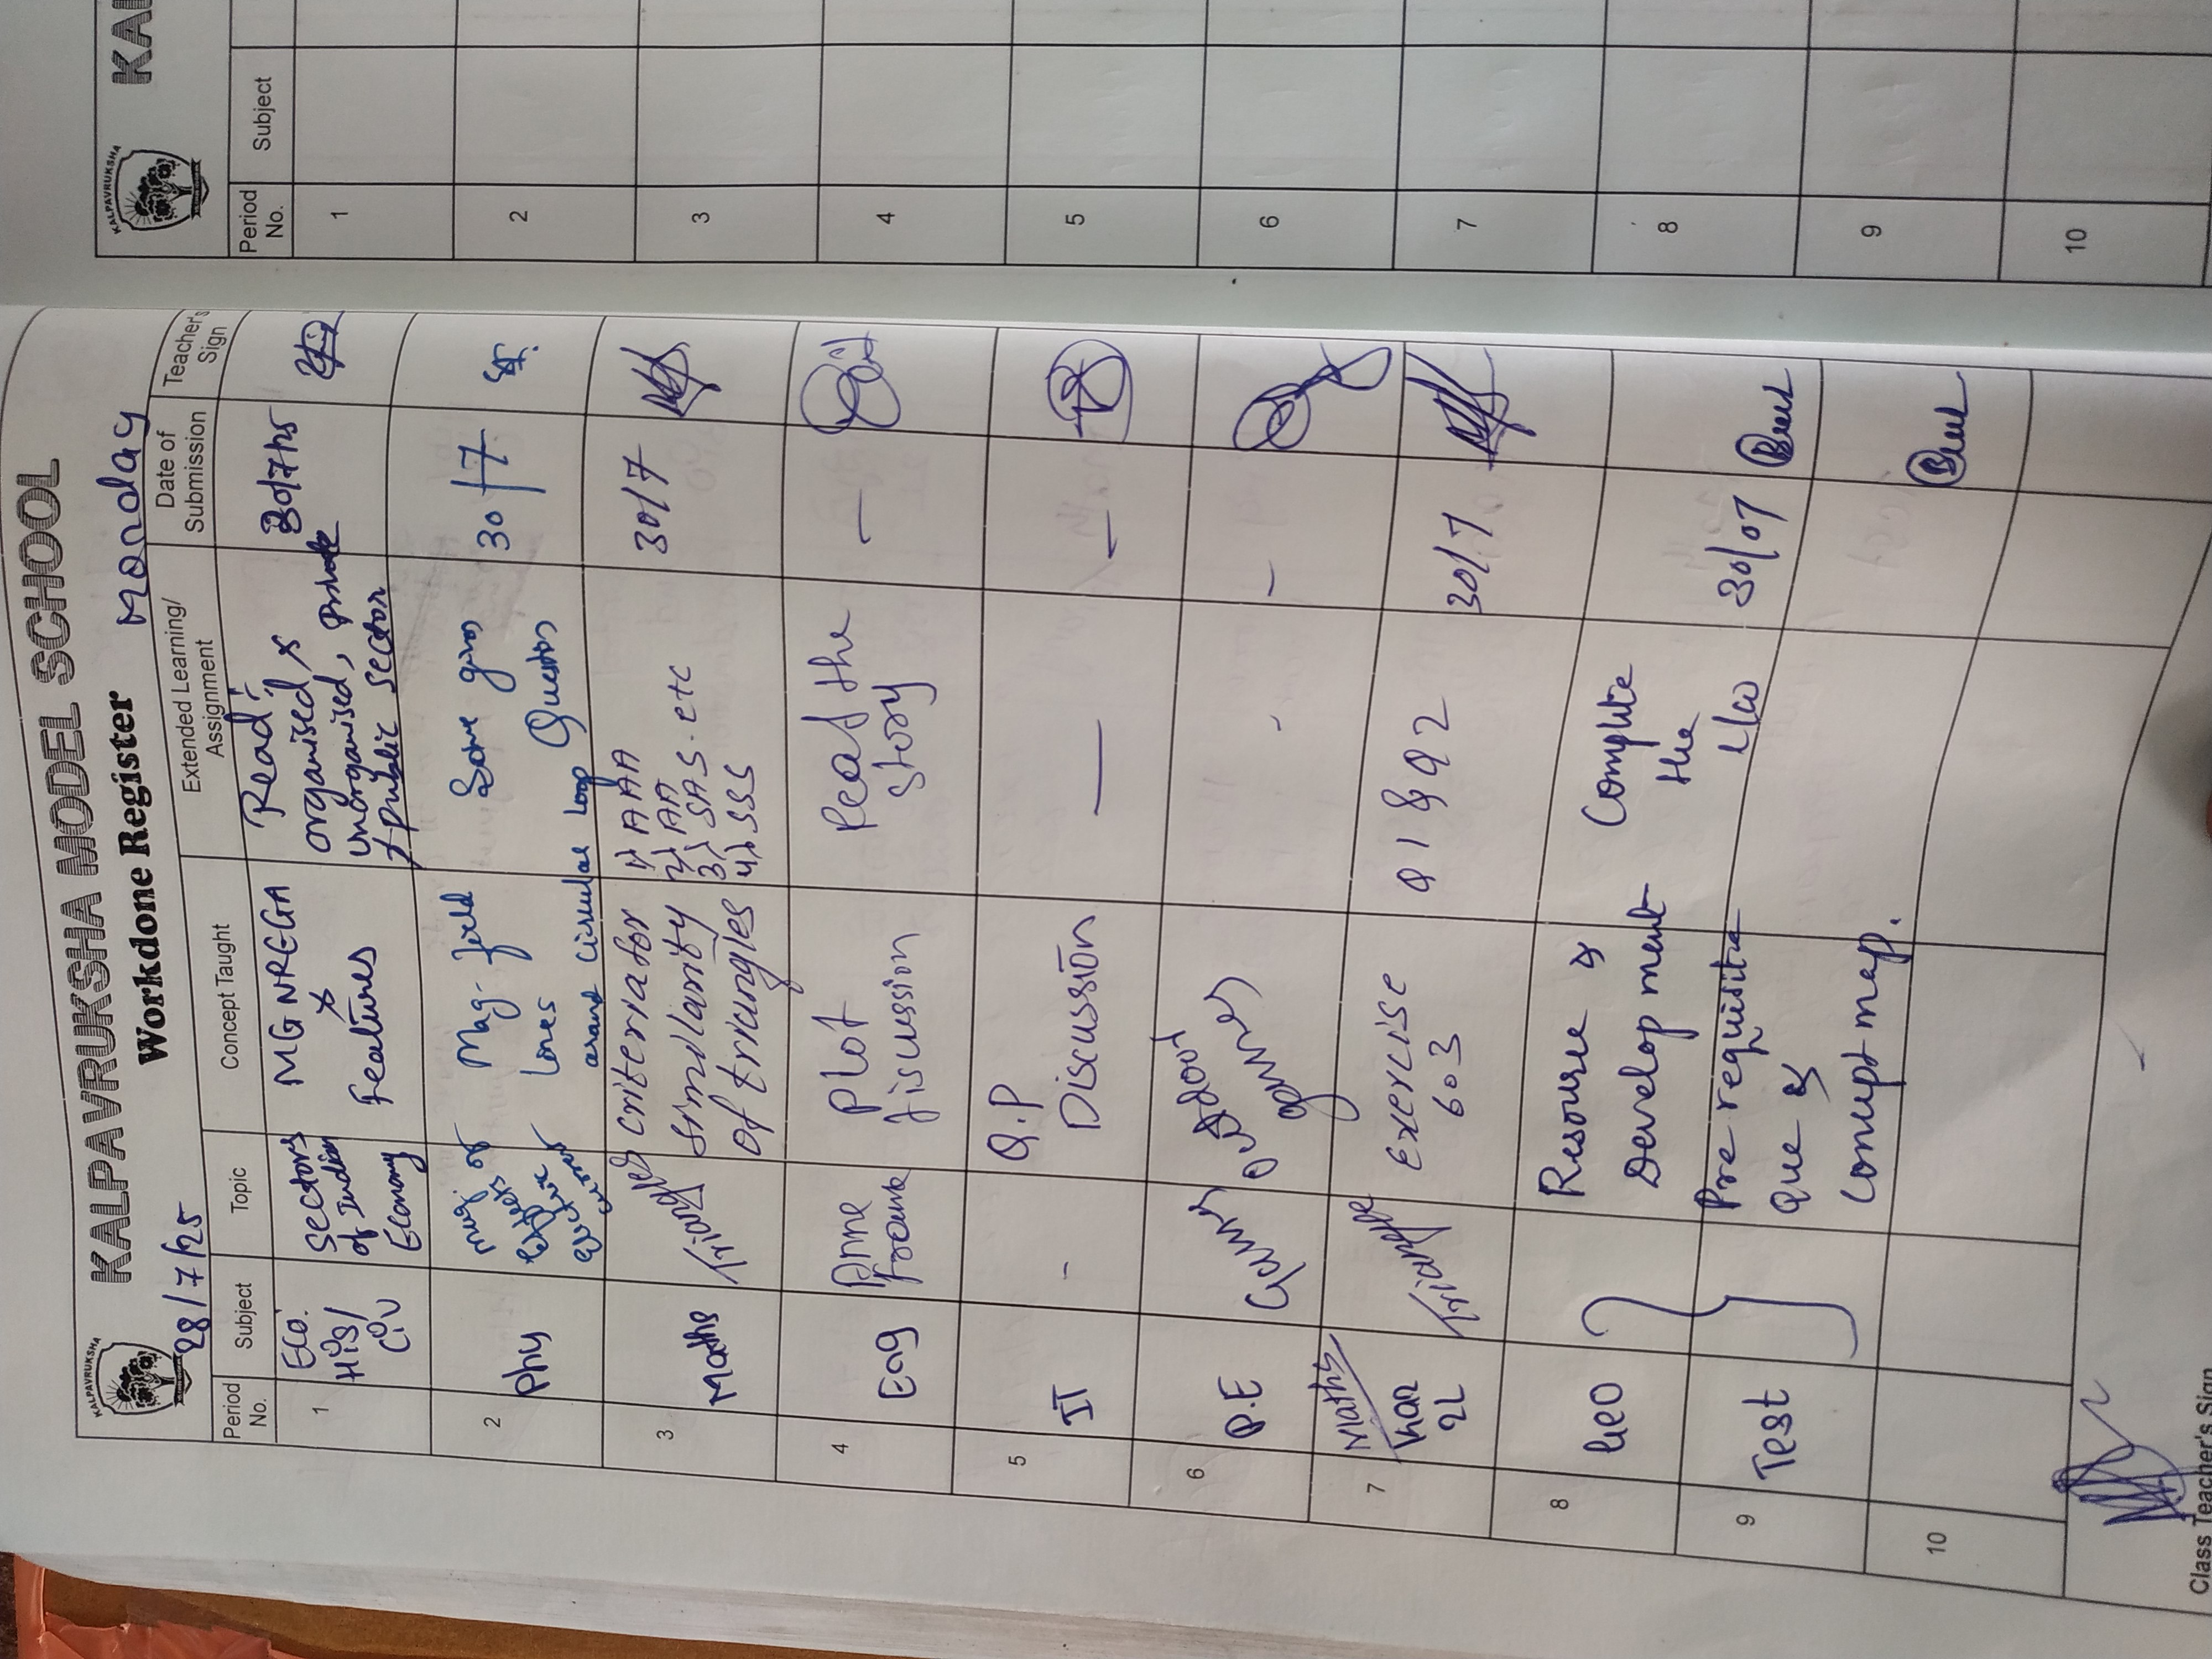 KALPAVRUKSHA
KALPAVRUKSHA MODEL SCHOOL
28/7/25
Workdone Register
Monday
Period No.
Subject
Topic
Concept Taught
Extended Learning/ Assignment
Date of Submission
Teacher's Sign
1
Eco.
His/
Civ
Sectors
of Indian
Economy
MGNREGA
&
Features
Read:-
organised &
unorganised, private
& public sector
30/7/25
2
Phy
mag.
of
electric
current
Mag. field
lines
around circular loop
Some given
Question
30/7
3
Maths
Triangles
criteria for
similarity
of triangles
1) AAA
2) AA
3) SAS. etc
4) SSS
30/7
4
Eng
Anne
Frank
Plot
discussion
Read the
story
—
5
IT
-
Q.P
Discussion
—
—
6
P.E
Games
outdoor
games
-
-
7
Maths
Triangle
Exercise
6.3
Q1 & Q2
30/7
8
Geo
Resourse &
Development
Complete
the
H/w
30/07
9
Test
Pre requisite
que &
concept map.
10
Class Teacher's Sign
KALPAVRUKSHA
KAL
Period No.
Subject
1
2
3
4
5
6
7
8
9
10